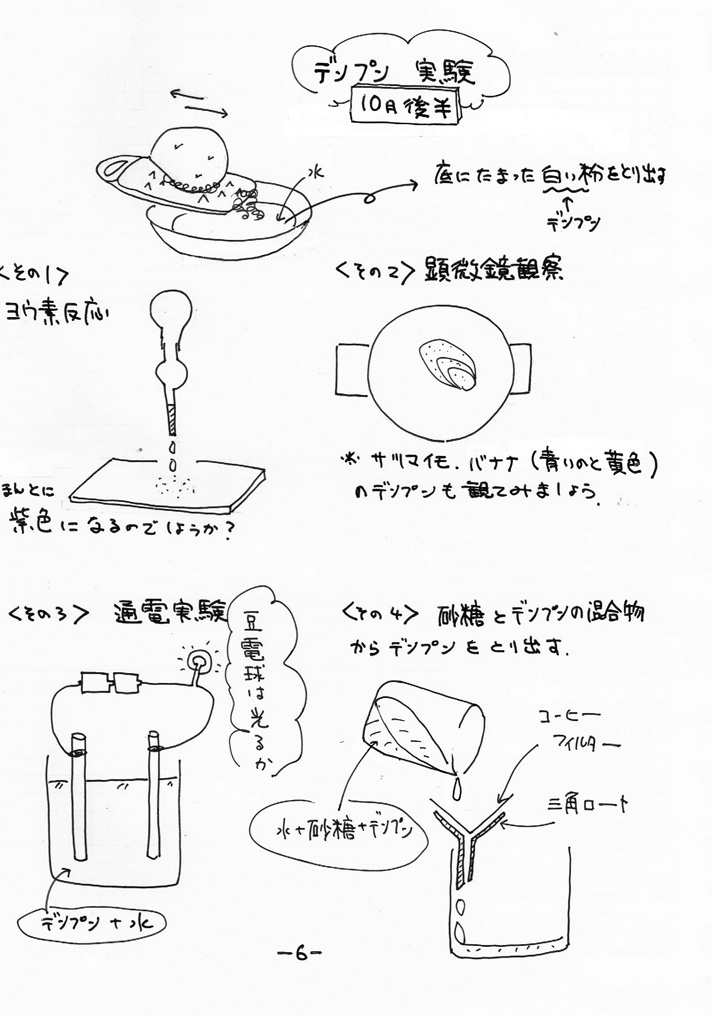 デンプン 実験
10月後半
水
底にたまった白い粉をとり出す
デンプン
<その1>
ヨウ素反応
ほんとに
紫色になるのでしょうか?
<その2> 顕微鏡観察
※ サツマイモ、バナナ(青いのと黄色)
のデンプンも観てみましょう。
<その3> 通電実験
豆電球は光るか
デンプン+水
<その4> 砂糖とデンプンの混合物
からデンプンをとり出す.
コーヒー
フィルター
三角ロート
水+砂糖+デンプン
-6-